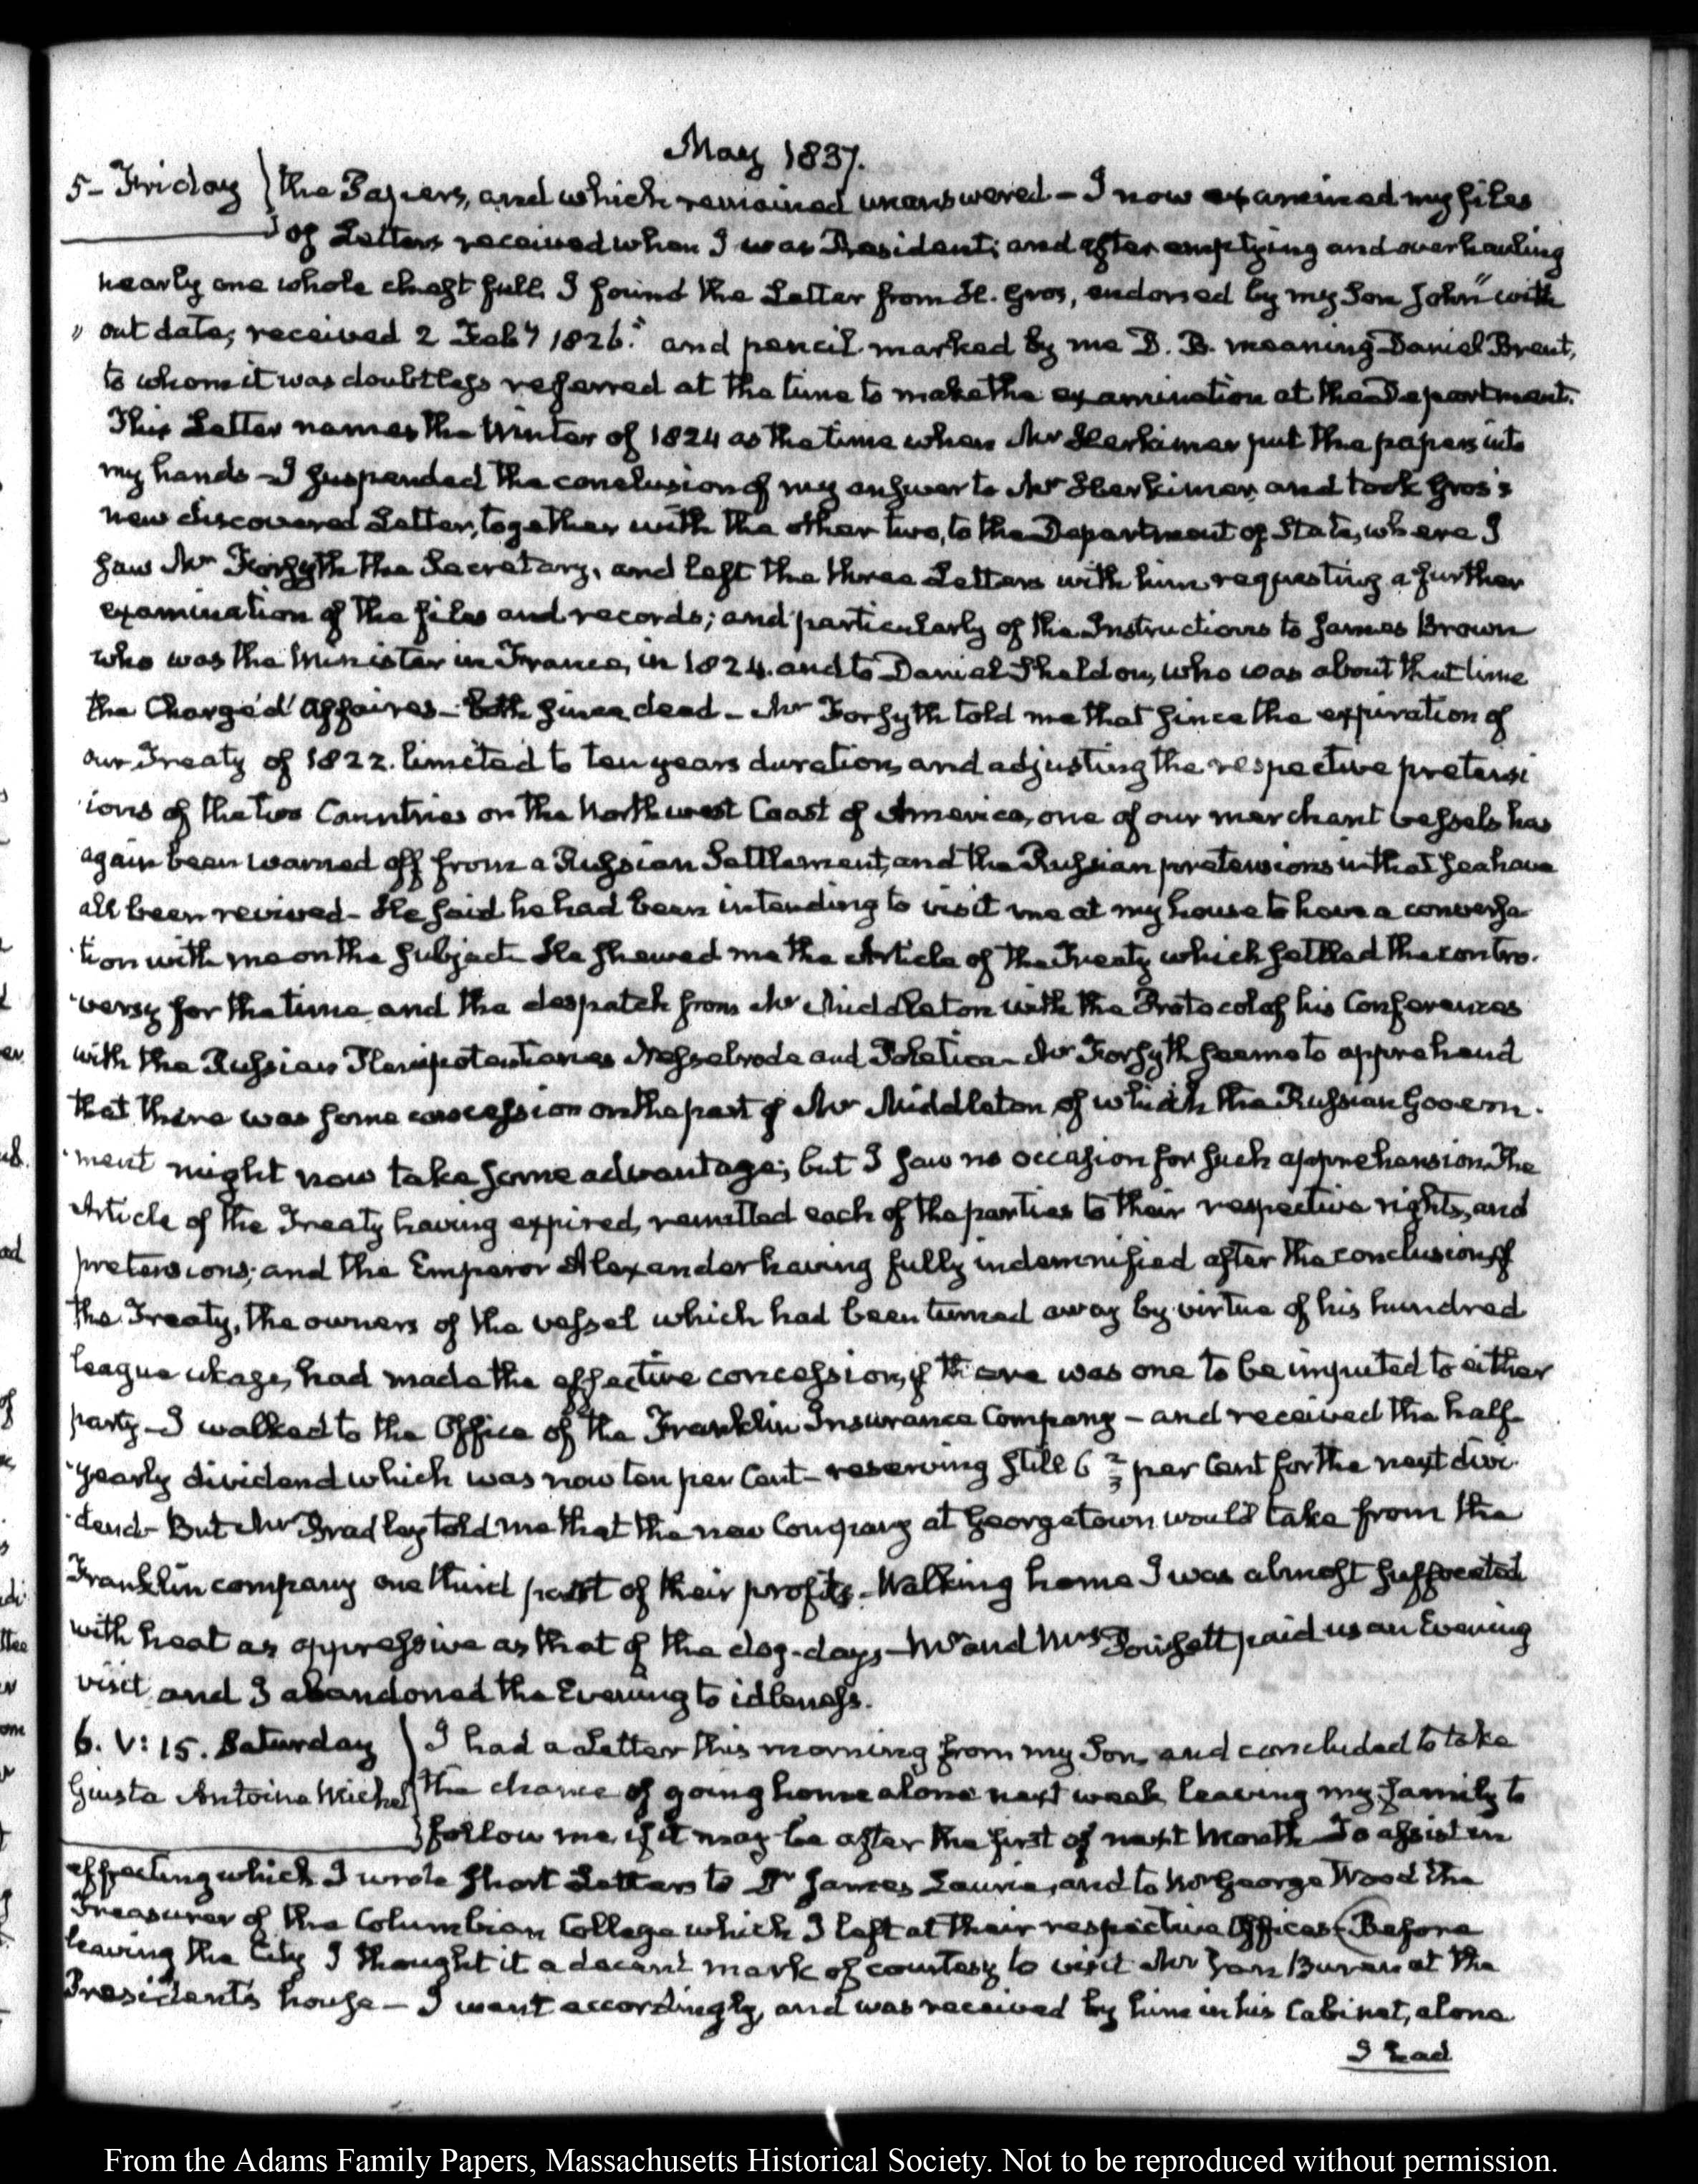 May 1837.
5- Friday } the Papers, and which remained unanswered - I now examined my files
of Letters received when I was President; and after emptying and overhauling
nearly one whole chest full I found the Letter from H. Gros, endorsed by my Son John "with
" out date, received 2 Feby 1826." and pencil marked by me D. B. meaning Daniel Brent,
to whom it was doubtless referred at the time to make the examination at the Department.
This Letter names the Winter of 1824 as the time when Mr Herkimer put the papers into
my hands - I suspended the conclusion of my answer to Mr Herkimer, and took Gros's
new discovered Letter, together with the other two, to the Department of State, where I
saw Mr Forsyth the Secretary, and left the three Letters with him requesting a further
examination of the files and records; and particularly of the Instructions to James Brown
who was the Minister in France, in 1824. and to Daniel Sheldon, who was about that time
the Chargé d'Affaires - both since dead - Mr Forsyth told me that since the expiration of
our Treaty of 1822. limited to ten years duration, and adjusting the respective pretensi
ions of the two Countries on the North west Coast of America, one of our merchant vessels has
again been warned off from a Russian Settlement, and the Russian pretensions in that Sea have
all been revived - He said he had been intending to visit me at my house to have a conversa
tion with me on the subject. He shewed me the Article of the Treaty which settled the contro-
versy for the time and the despatch from Mr Middleton with the Protocol of his Conferences
with the Russian Plenipotentiaries Nesselrode and Poletica - Mr Forsyth seems to apprehend
that there was some concession on the part of Mr Middleton of which the Russian Govern-
ment might now take some advantage; but I saw no occasion for such apprehension. The
Article of the Treaty having expired, remitted each of the parties to their respective rights, and
pretensions; and the Emperor Alexander having fully indemnified after the conclusion of
the Treaty, the owners of the vessel which had been turned away by virtue of his hundred
league ukase, had made the effective concession, if there was one to be imputed to either
party - I walked to the Office of the Franklin Insurance Company - and received the half-
yearly dividend which was now ten per Cent - reserving still 6 2/3 per Cent for the next divi-
dend - But Mr Bradley told me that the new Company at Georgetown would take from the
Franklin company one third part of their profits - Walking home I was almost suffocated
with heat as oppressive as that of the dog-days - Mr and Mrs paid us an Evening
visit and I abandoned the Evening to idleness.
6. V: 15. Saturday } I had a Letter this morning from my Son, and concluded to take
Giusta Antoine Michel } the chance of going home alone next week, leaving my family to
follow me, if it may be after the first of next Month - To assist in
effecting which I wrote short Letters to Dr James Laurie, and to Mr George Wood the
Treasurer of the Columbian College which I left at their respective Offices - Before
leaving the City I thought it a decent mark of courtesy to visit Mr Van Buren at the
President's house - I went accordingly, and was received by him in his Cabinet, alone
I had
From the Adams Family Papers, Massachusetts Historical Society. Not to be reproduced without permission.